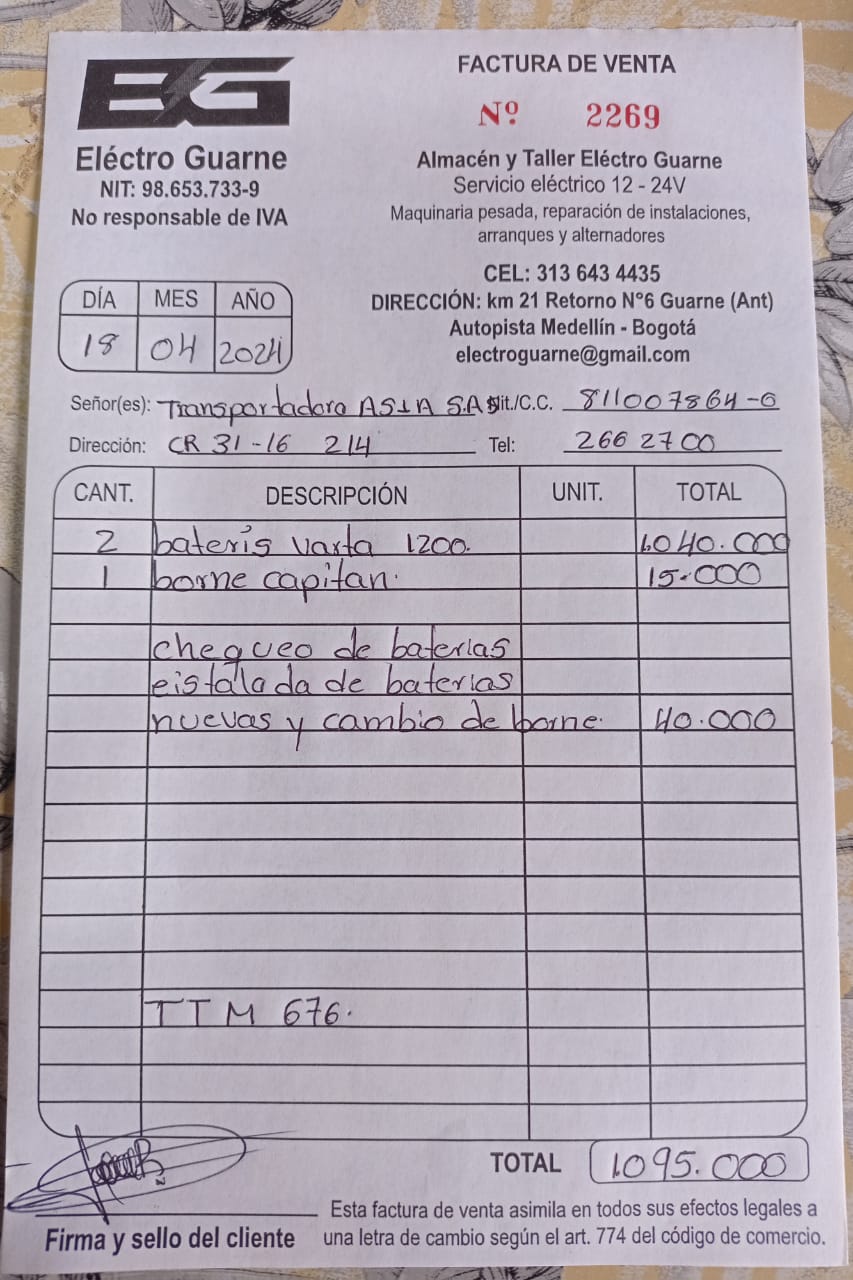 EG
FACTURA DE VENTA
Nº 2269
Eléctro Guarne
NIT: 98.653.733-9
No responsable de IVA
Almacén y Taller Eléctro Guarne
Servicio eléctrico 12 - 24V
Maquinaria pesada, reparación de instalaciones,
arranques y alternadores
CEL: 313 643 4435
DIRECCIÓN: km 21 Retorno N°6 Guarne (Ant)
Autopista Medellín - Bogotá
electroguarne@gmail.com
DÍA MES AÑO
18 04 2024
Señor(es): Transportadora ASIA S.A.S Nit./C.C. 811007864-6
Dirección: CR 31-16 214 Tel: 266 2700
CANT. DESCRIPCIÓN UNIT. TOTAL
2 baterís varta 1200. 1.040.000
1 borne capitan. 15.000
chequeo de baterias
eistalada de baterias
nuevas y cambio de borne. 40.000
TTM 676.
TOTAL 1.095.000
Firma y sello del cliente
Esta factura de venta asimila en todos sus efectos legales a
una letra de cambio según el art. 774 del código de comercio.